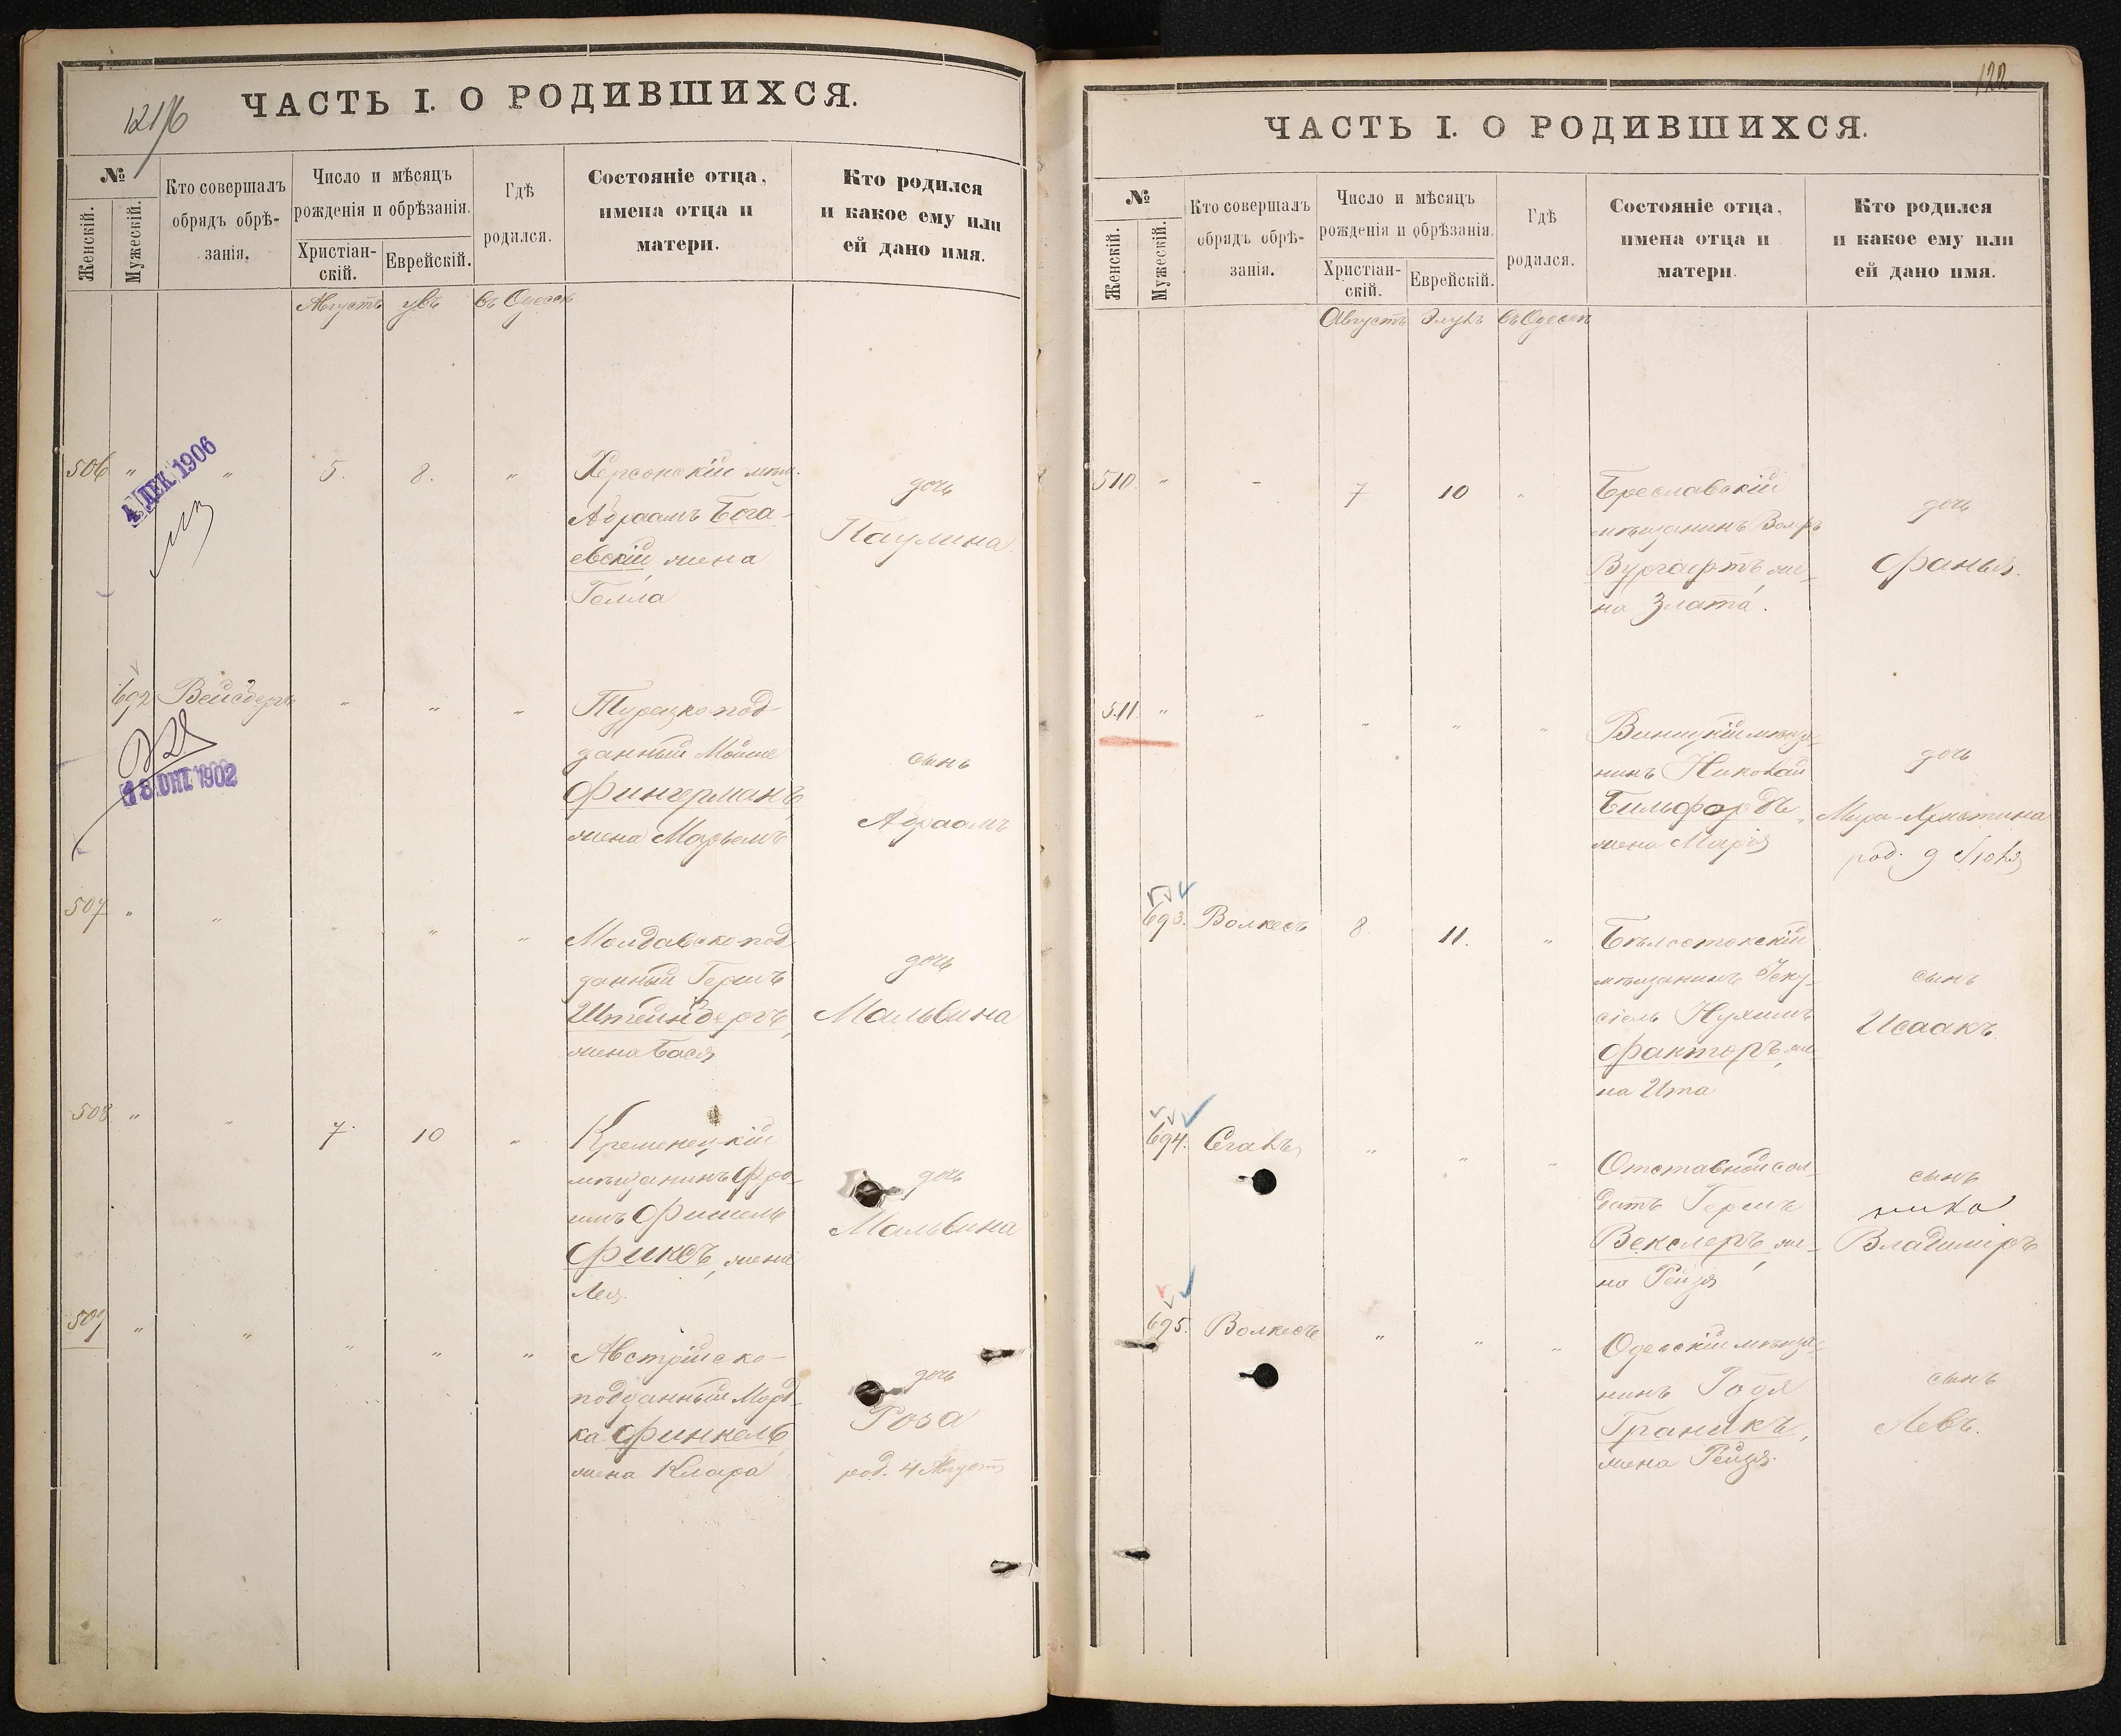 121/6
ЧАСТЬ I. О РОДИВШИХСЯ.
№
Женскій.
Мужескій.
Кто совершалъ
обрядъ обрѣ-
занія.
Число и мѣсяцъ
рожденія и обрѣзанія.
Христіан-
скій.
Еврейскій.
Гдѣ
родился.
Состояніе отца,
имена отца и
матери.
Кто родился
и какое ему или
ей дано имя.
Августъ
въ Одессѣ
506 " " 5. 8. "
4 ДЕК. 1906
Херсонскій мѣщ.
Абраамъ Бога-
евскій жена
Гелла
дочь
Паулина.
692 Вейсбергъ " " "
18 ОКТ. 1902
Турецкопод-
данный Мойше
Фингерманъ,
жена Марьемъ
сынъ
Абраамъ
507 " " " " "
Молдавскопод-
данный Гершъ
Штейнбергъ,
жена Бася
дочь
Мальвина
508 " " 7. 10 "
Кременецкій
мѣщанинъ Фро-
имъ Фишель
Фиксъ, жена
Лея.
дочь
Мальвина
509 " " " " "
Австрійско-
подданный Морд-
ка Финкель
жена Клара
дочь
Роза
род. 4 Августа
122
ЧАСТЬ I. О РОДИВШИХСЯ.
№
Женскій.
Мужескій.
Кто совершалъ
обрядъ обрѣ-
занія.
Число и мѣсяцъ
рожденія и обрѣзанія.
Христіан-
скій.
Еврейскій.
Гдѣ
родился.
Состояніе отца,
имена отца и
матери.
Кто родился
и какое ему или
ей дано имя.
Августъ
Элулъ
въ Одессѣ
510. " - 7 10 "
Бреславскій
мѣщанинъ Вольфъ
Вургафтъ же-
на Злата.
дочь
Фаня.
511. " " " " "
Виницкій мѣща-
нинъ Николай
Бильфордъ,
жена Марія
дочь
Мира-Христина
род. 9 Іюля
693. Волкесъ 8. 11. "
Бѣлостокскій
мѣщанинъ Іеку-
сіель Нухимъ
Факторъ, же-
на Ита
сынъ
Исаакъ.
694. Сегалъ " " "
Отставной сол-
датъ Гершъ
Векслеръ, же-
на Рейзя
сынъ
Владиміръ
695. Волкесъ " " "
Одесскій мѣща-
нинъ
Граникъ,
жена Рейзя.
сынъ
Левъ.